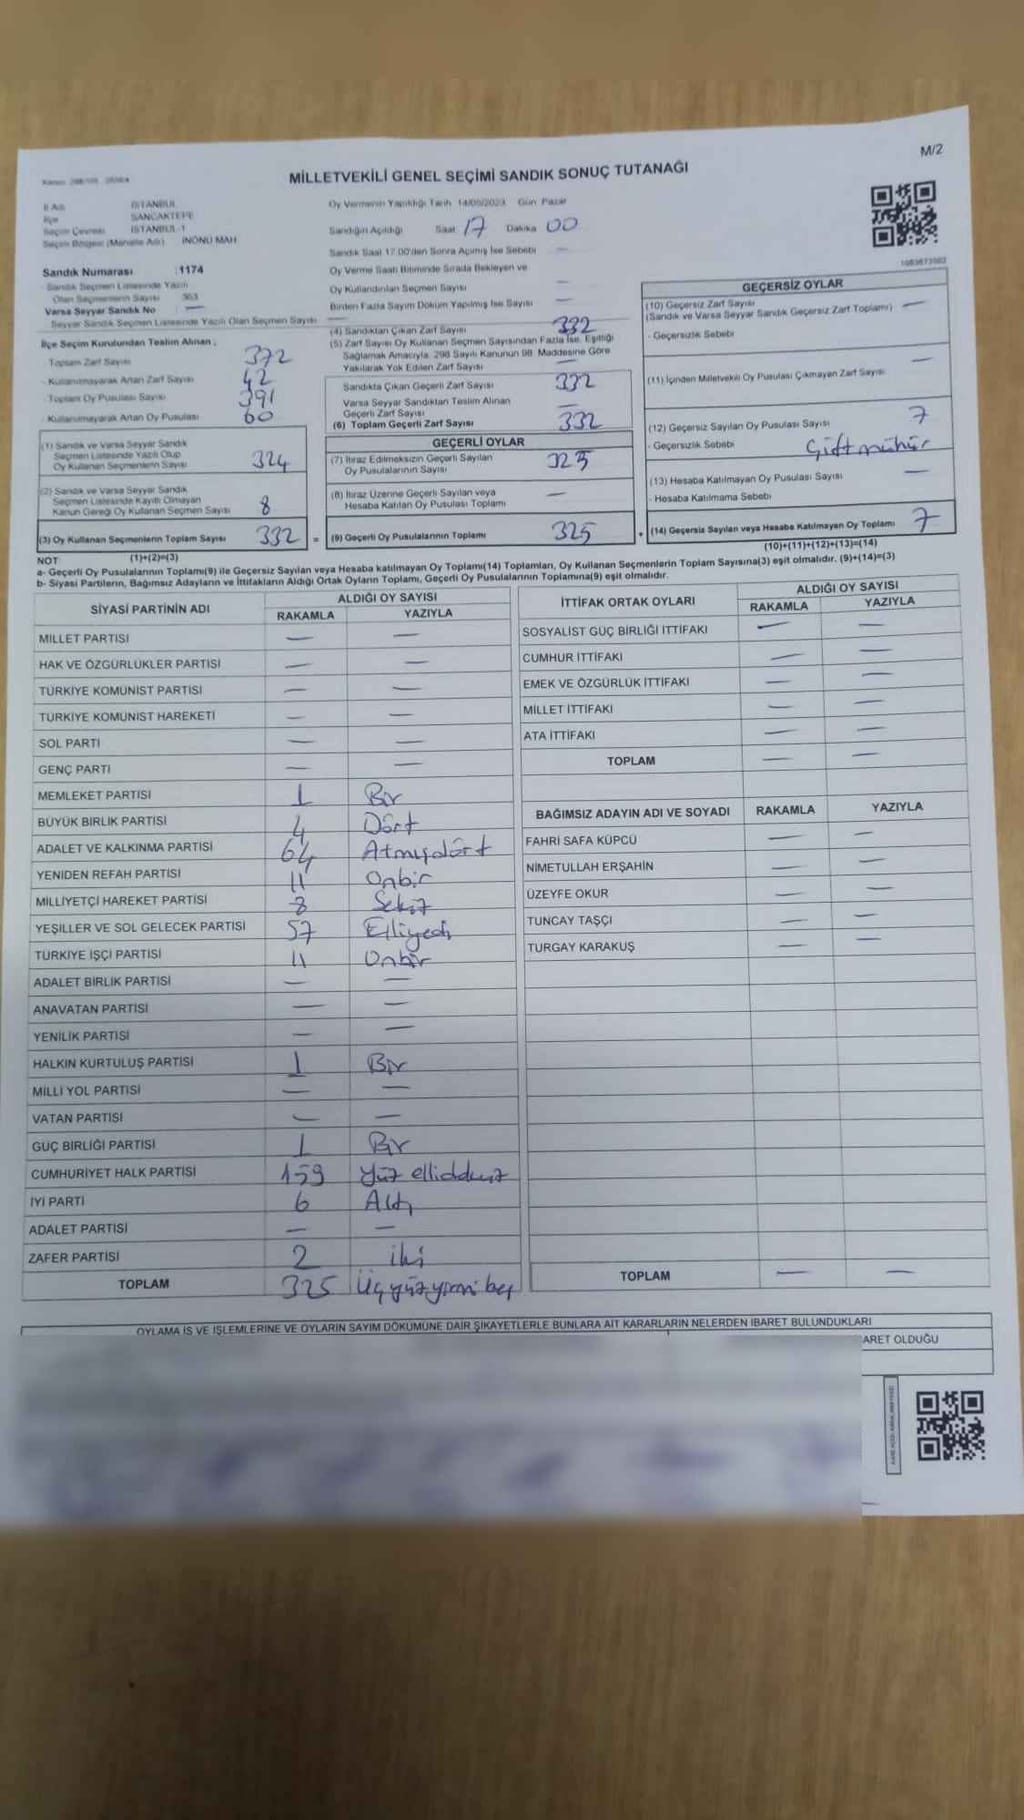 M/2
MİLLETVEKİLİ GENEL SEÇİMİ SANDIK SONUÇ TUTANAĞI
İl Adı İSTANBUL
İlçe SANCAKTEPE
Seçim Çevresi İSTANBUL-1
Seçim Bölgesi (Mahalle Adı) İNÖNÜ MAH
Sandık Numarası : 1174
Sandık Seçmen Listesinde Yazılı
Olan Seçmenlerin Sayısı 363
Varsa Seyyar Sandık No —
Seyyar Sandık Seçmen Listesinde Yazılı Olan Seçmen Sayısı —
Oy Vermenin Yapıldığı Tarih 14/05/2023 Gün Pazar
Sandığın Açıldığı Saat 17 Dakika 00
Sandık Saat 17.00'den Sonra Açılmış İse Sebebi —
Oy Verme Saati Bitiminde Sırada Bekleyen ve
Oy Kullandırılan Seçmen Sayısı —
Birden Fazla Sayım Döküm Yapılmış İse Sayısı —
İlçe Seçim Kurulundan Teslim Alınan ;
Toplam Zarf Sayısı 372
- Kullanılmayarak Artan Zarf Sayısı 42
- Toplam Oy Pusulası Sayısı 391
- Kullanılmayarak Artan Oy Pusulası 60
(1) Sandık ve Varsa Seyyar Sandık
Seçmen Listesinde Yazılı Olup
Oy Kullanan Seçmenlerin Sayısı 324
(2) Sandık ve Varsa Seyyar Sandık
Seçmen Listesinde Kayıtlı Olmayan
Kanun Gereği Oy Kullanan Seçmen Sayısı 8
(3) Oy Kullanan Seçmenlerin Toplam Sayısı 332 =
(1)+(2)=(3)
(4) Sandıktan Çıkan Zarf Sayısı 332
(5) Zarf Sayısı Oy Kullanan Seçmen Sayısından Fazla İse, Eşitliği
Sağlamak Amacıyla, 298 Sayılı Kanunun 98. Maddesine Göre
Yakılarak Yok Edilen Zarf Sayısı —
Sandıkta Çıkan Geçerli Zarf Sayısı 332
Varsa Seyyar Sandıktan Teslim Alınan
Geçerli Zarf Sayısı —
(6) Toplam Geçerli Zarf Sayısı 332
GEÇERLİ OYLAR
(7) İtiraz Edilmeksizin Geçerli Sayılan
Oy Pusulalarının Sayısı 325
(8) İtiraz Üzerine Geçerli Sayılan veya
Hesaba Katılan Oy Pusulası Toplamı —
(9) Geçerli Oy Pusulalarının Toplamı 325 +
GEÇERSİZ OYLAR
(10) Geçersiz Zarf Sayısı
(Sandık ve Varsa Seyyar Sandık Geçersiz Zarf Toplamı) —
- Geçersizlik Sebebi
(11) İçinden Milletvekili Oy Pusulası Çıkmayan Zarf Sayısı —
(12) Geçersiz Sayılan Oy Pusulası Sayısı 7
- Geçersizlik Sebebi Çift mühür
(13) Hesaba Katılmayan Oy Pusulası Sayısı —
- Hesaba Katılmama Sebebi
(14) Geçersiz Sayılan veya Hesaba Katılmayan Oy Toplamı 7
(10)+(11)+(12)+(13)=(14)
NOT:
a- Geçerli Oy Pusulalarının Toplamı(9) ile Geçersiz Sayılan veya Hesaba katılmayan Oy Toplamı(14) Toplamları, Oy Kullanan Seçmenlerin Toplam Sayısına(3) eşit olmalıdır. (9)+(14)=(3)
b- Siyasi Partilerin, Bağımsız Adayların ve İttifakların Aldığı Ortak Oyların Toplamı, Geçerli Oy Pusulalarının Toplamına(9) eşit olmalıdır.
SİYASİ PARTİNİN ADI ALDIĞI OY SAYISI
RAKAMLA YAZIYLA
MİLLET PARTİSİ — —
HAK VE ÖZGÜRLÜKLER PARTİSİ — —
TÜRKİYE KOMÜNİST PARTİSİ — —
TÜRKİYE KOMÜNİST HAREKETİ — —
SOL PARTİ — —
GENÇ PARTİ — —
MEMLEKET PARTİSİ 1 Bir
BÜYÜK BİRLİK PARTİSİ 4 Dört
ADALET VE KALKINMA PARTİSİ 64 Atmışdört
YENİDEN REFAH PARTİSİ 11 Onbir
MİLLİYETÇİ HAREKET PARTİSİ 8 Sekiz
YEŞİLLER VE SOL GELECEK PARTİSİ 57 Elliyedi
TÜRKİYE İŞÇİ PARTİSİ 11 Onbir
ADALET BİRLİK PARTİSİ — —
ANAVATAN PARTİSİ — —
YENİLİK PARTİSİ — —
HALKIN KURTULUŞ PARTİSİ 1 Bir
MİLLİ YOL PARTİSİ — —
VATAN PARTİSİ — —
GÜÇ BİRLİĞİ PARTİSİ 1 Bir
CUMHURİYET HALK PARTİSİ 159 Yüz ellidokuz
İYİ PARTİ 6 Altı
ADALET PARTİSİ — —
ZAFER PARTİSİ 2 iki
TOPLAM 325 Üçyüzyirmi beş
İTTİFAK ORTAK OYLARI ALDIĞI OY SAYISI
RAKAMLA YAZIYLA
SOSYALİST GÜÇ BİRLİĞİ İTTİFAKI — —
CUMHUR İTTİFAKI — —
EMEK VE ÖZGÜRLÜK İTTİFAKI — —
MİLLET İTTİFAKI — —
ATA İTTİFAKI — —
TOPLAM — —
BAĞIMSIZ ADAYIN ADI VE SOYADI RAKAMLA YAZIYLA
FAHRİ SAFA KÜPCÜ — —
NİMETULLAH ERŞAHİN — —
ÜZEYFE OKUR — —
TUNCAY TAŞÇI — —
TURGAY KARAKUŞ — —
TOPLAM — —
OYLAMA İŞ VE İŞLEMLERİNE VE OYLARIN SAYIM DÖKÜMÜNE DAİR ŞİKAYETLERLE BUNLARA AİT KARARLARIN NELERDEN İBARET BULUNDUKLARI
ARET OLDUĞU